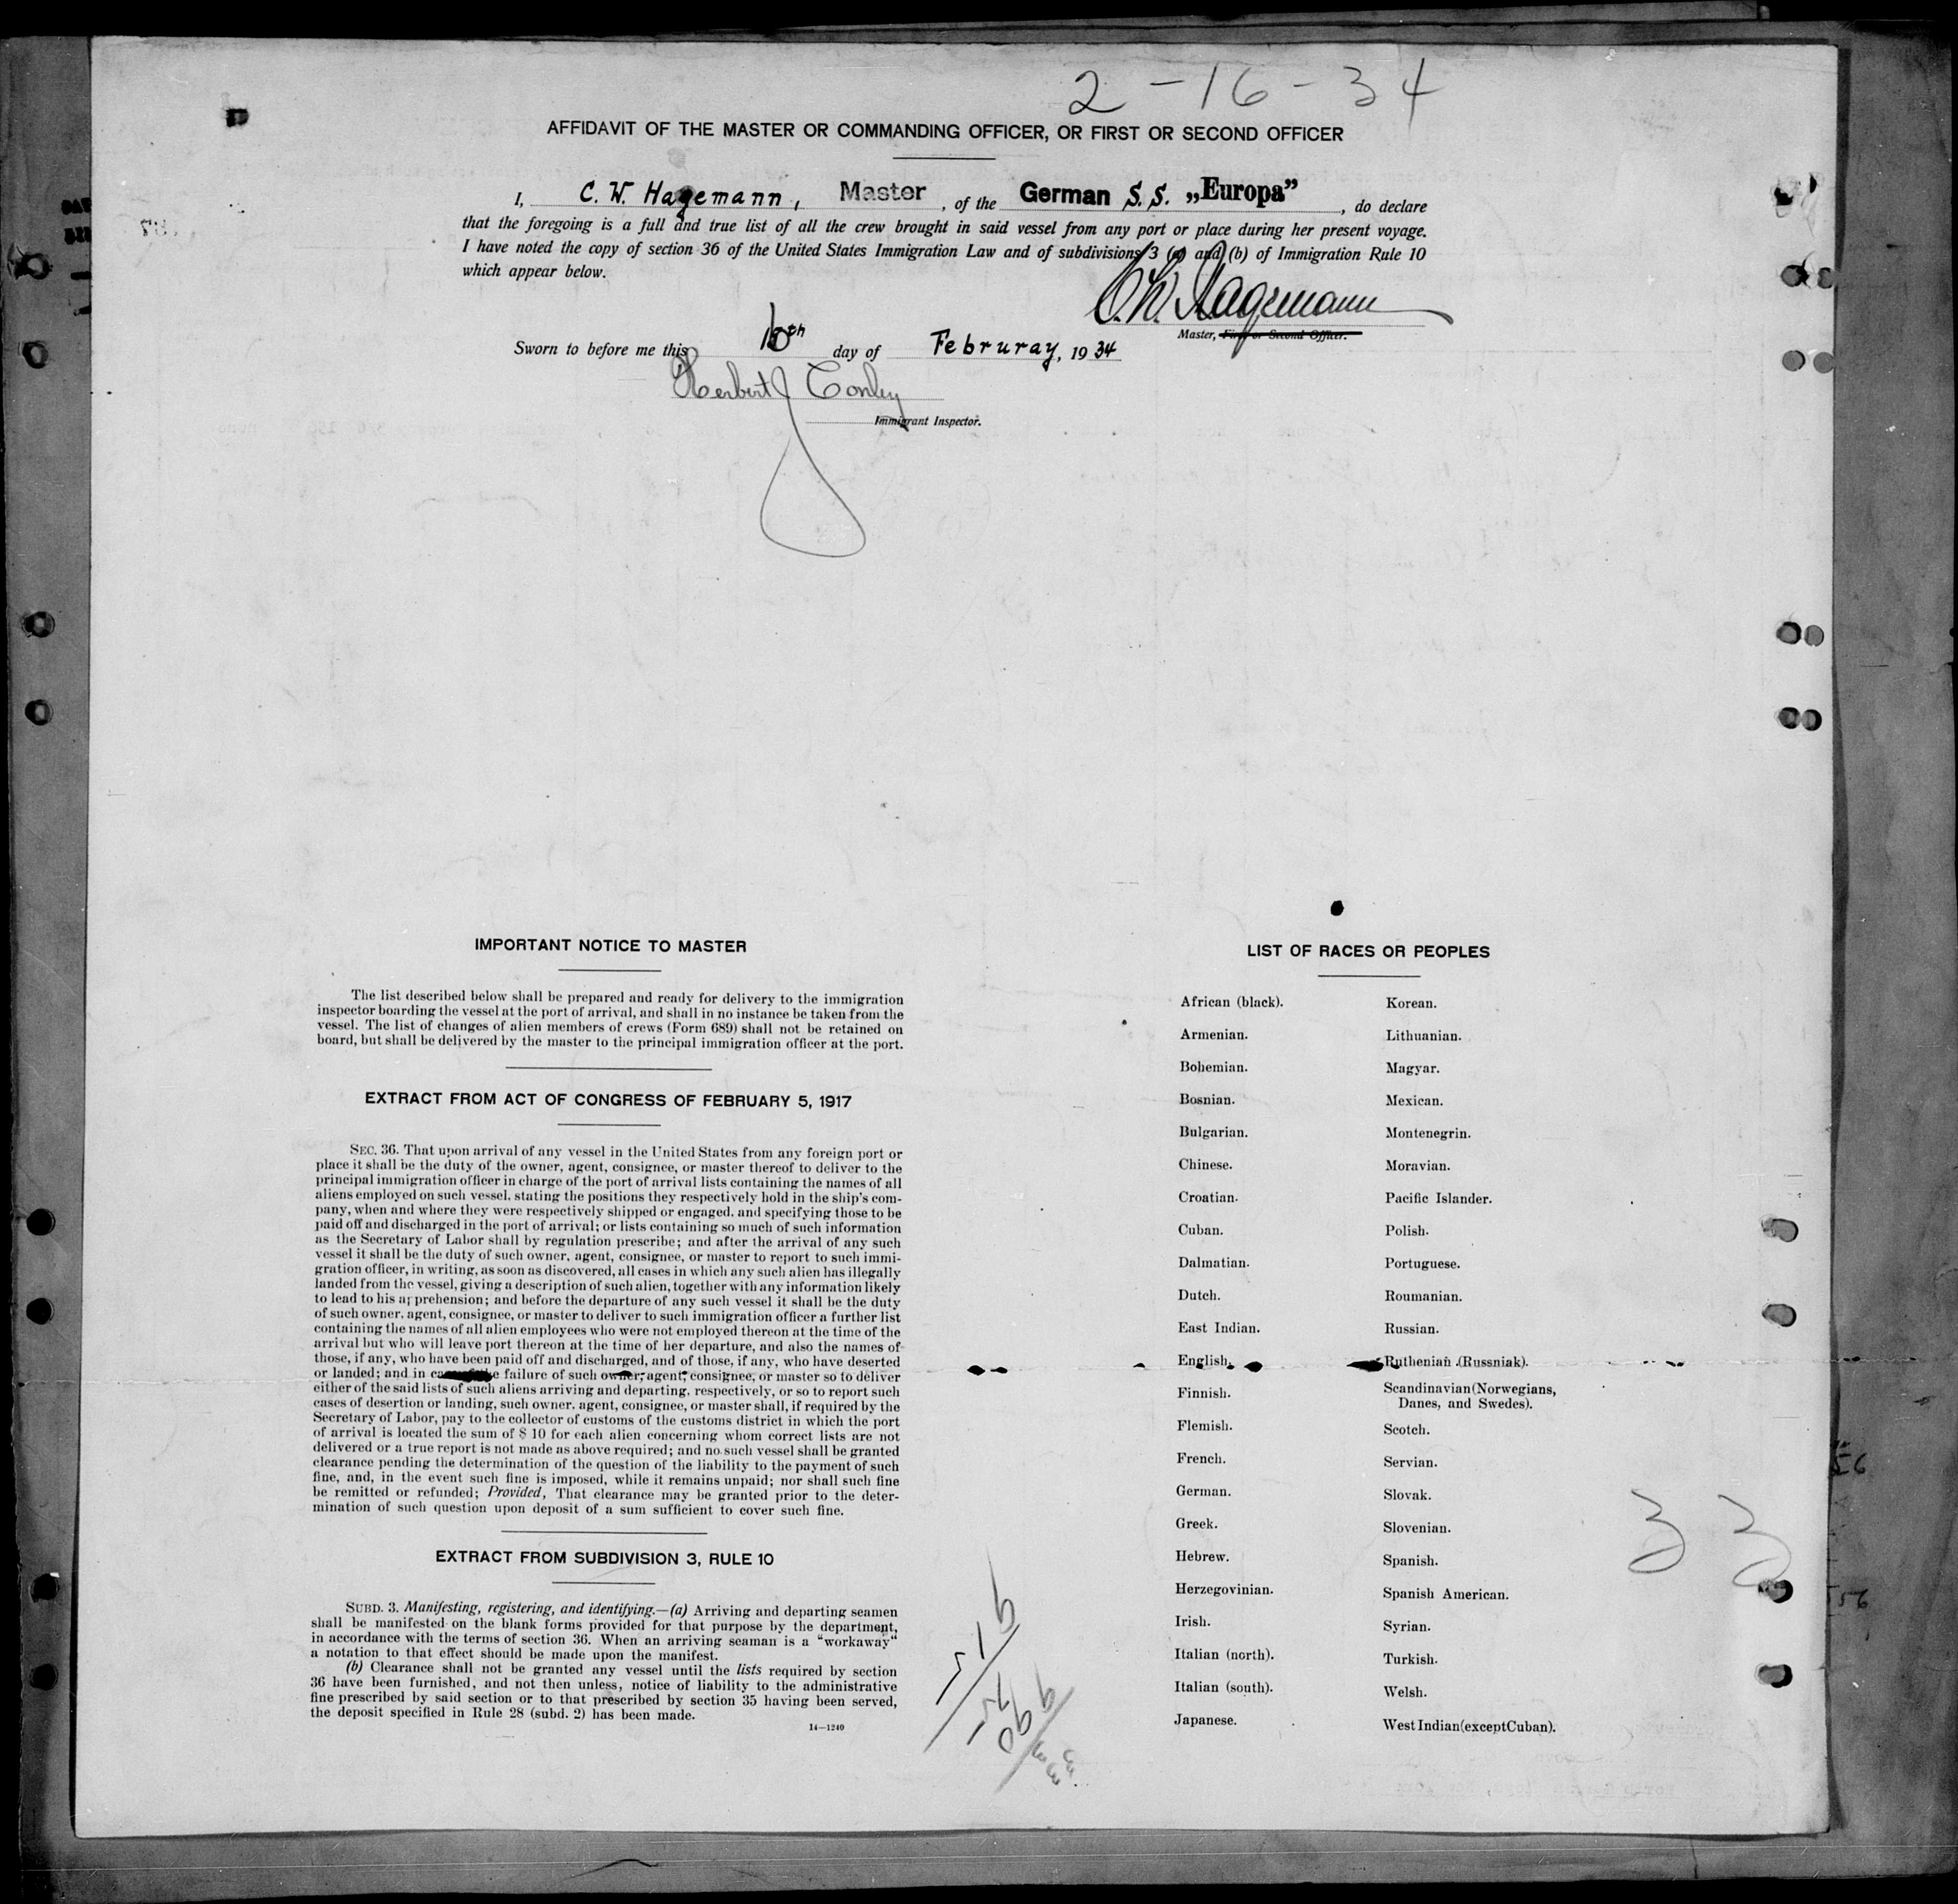 2-16-34
AFFIDAVIT OF THE MASTER OR COMMANDING OFFICER, OR FIRST OR SECOND OFFICER
I, C. W. Hagemann, Master, of the German S.S. „Europa”, do declare
that the foregoing is a full and true list of all the crew brought in said vessel from any port or place during her present voyage.
I have noted the copy of section 36 of the United States Immigration Law and of subdivisions 3 (a) and (b) of Immigration Rule 10
which appear below.
C.W. Hagemann
Master, First or Second Officer.
Sworn to before me this 16th day of Februray, 1934
Herbert J Conley
Immigrant Inspector.
IMPORTANT NOTICE TO MASTER
The list described below shall be prepared and ready for delivery to the immigration
inspector boarding the vessel at the port of arrival, and shall in no instance be taken from the
vessel. The list of changes of alien members of crews (Form 689) shall not be retained on
board, but shall be delivered by the master to the principal immigration officer at the port.
EXTRACT FROM ACT OF CONGRESS OF FEBRUARY 5, 1917
SEC. 36. That upon arrival of any vessel in the United States from any foreign port or
place it shall be the duty of the owner, agent, consignee, or master thereof to deliver to the
principal immigration officer in charge of the port of arrival lists containing the names of all
aliens employed on such vessel, stating the positions they respectively hold in the ship's com-
pany, when and where they were respectively shipped or engaged, and specifying those to be
paid off and discharged in the port of arrival; or lists containing so much of such information
as the Secretary of Labor shall by regulation prescribe; and after the arrival of any such
vessel it shall be the duty of such owner, agent, consignee, or master to report to such immi-
gration officer, in writing, as soon as discovered, all cases in which any such alien has illegally
landed from the vessel, giving a description of such alien, together with any information likely
to lead to his apprehension; and before the departure of any such vessel it shall be the duty
of such owner, agent, consignee, or master to deliver to such immigration officer a further list
containing the names of all alien employees who were not employed thereon at the time of the
arrival but who will leave port thereon at the time of her departure, and also the names of
those, if any, who have been paid off and discharged, and of those, if any, who have deserted
or landed; and in case of the failure of such owner, agent, consignee, or master so to deliver
either of the said lists of such aliens arriving and departing, respectively, or so to report such
cases of desertion or landing, such owner, agent, consignee, or master shall, if required by the
Secretary of Labor, pay to the collector of customs of the customs district in which the port
of arrival is located the sum of $ 10 for each alien concerning whom correct lists are not
delivered or a true report is not made as above required; and no such vessel shall be granted
clearance pending the determination of the question of the liability to the payment of such
fine, and, in the event such fine is imposed, while it remains unpaid; nor shall such fine
be remitted or refunded; Provided, That clearance may be granted prior to the deter-
mination of such question upon deposit of a sum sufficient to cover such fine.
EXTRACT FROM SUBDIVISION 3, RULE 10
SUBD. 3. Manifesting, registering, and identifying.—(a) Arriving and departing seamen
shall be manifested on the blank forms provided for that purpose by the department,
in accordance with the terms of section 36. When an arriving seaman is a “workaway“
a notation to that effect should be made upon the manifest.
(b) Clearance shall not be granted any vessel until the lists required by section
36 have been furnished, and not then unless, notice of liability to the administrative
fine prescribed by said section or to that prescribed by section 35 having been served,
the deposit specified in Rule 28 (subd. 2) has been made.
14—1240
LIST OF RACES OR PEOPLES
African (black).
Armenian.
Bohemian.
Bosnian.
Bulgarian.
Chinese.
Croatian.
Cuban.
Dalmatian.
Dutch.
East Indian.
English.
Finnish.
Flemish.
French.
German.
Greek.
Hebrew.
Herzegovinian.
Irish.
Italian (north).
Italian (south).
Japanese.
Korean.
Lithuanian.
Magyar.
Mexican.
Montenegrin.
Moravian.
Pacific Islander.
Polish.
Portuguese.
Roumanian.
Russian.
Ruthenian (Russniak).
Scandinavian (Norwegians,
Danes, and Swedes).
Scotch.
Servian.
Slovak.
Slovenian.
Spanish.
Spanish American.
Syrian.
Turkish.
Welsh.
West Indian (except Cuban).
33